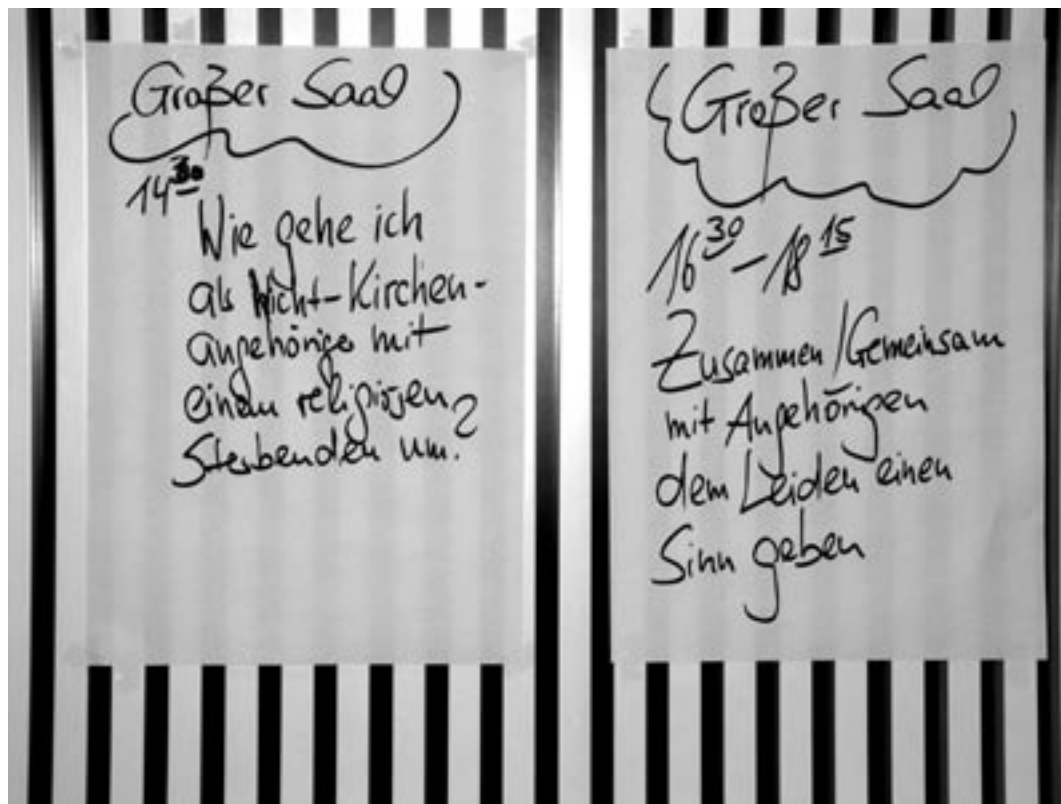 Großer Saal
14 30
Wie gehe ich
als Nicht-Kirchen-
angehörige mit
einem religiösen
Sterbenden um?
Großer Saal
16 30 - 18 15
Zusammen/Gemeinsam
mit Angehörigen
dem Leiden einen
Sinn geben